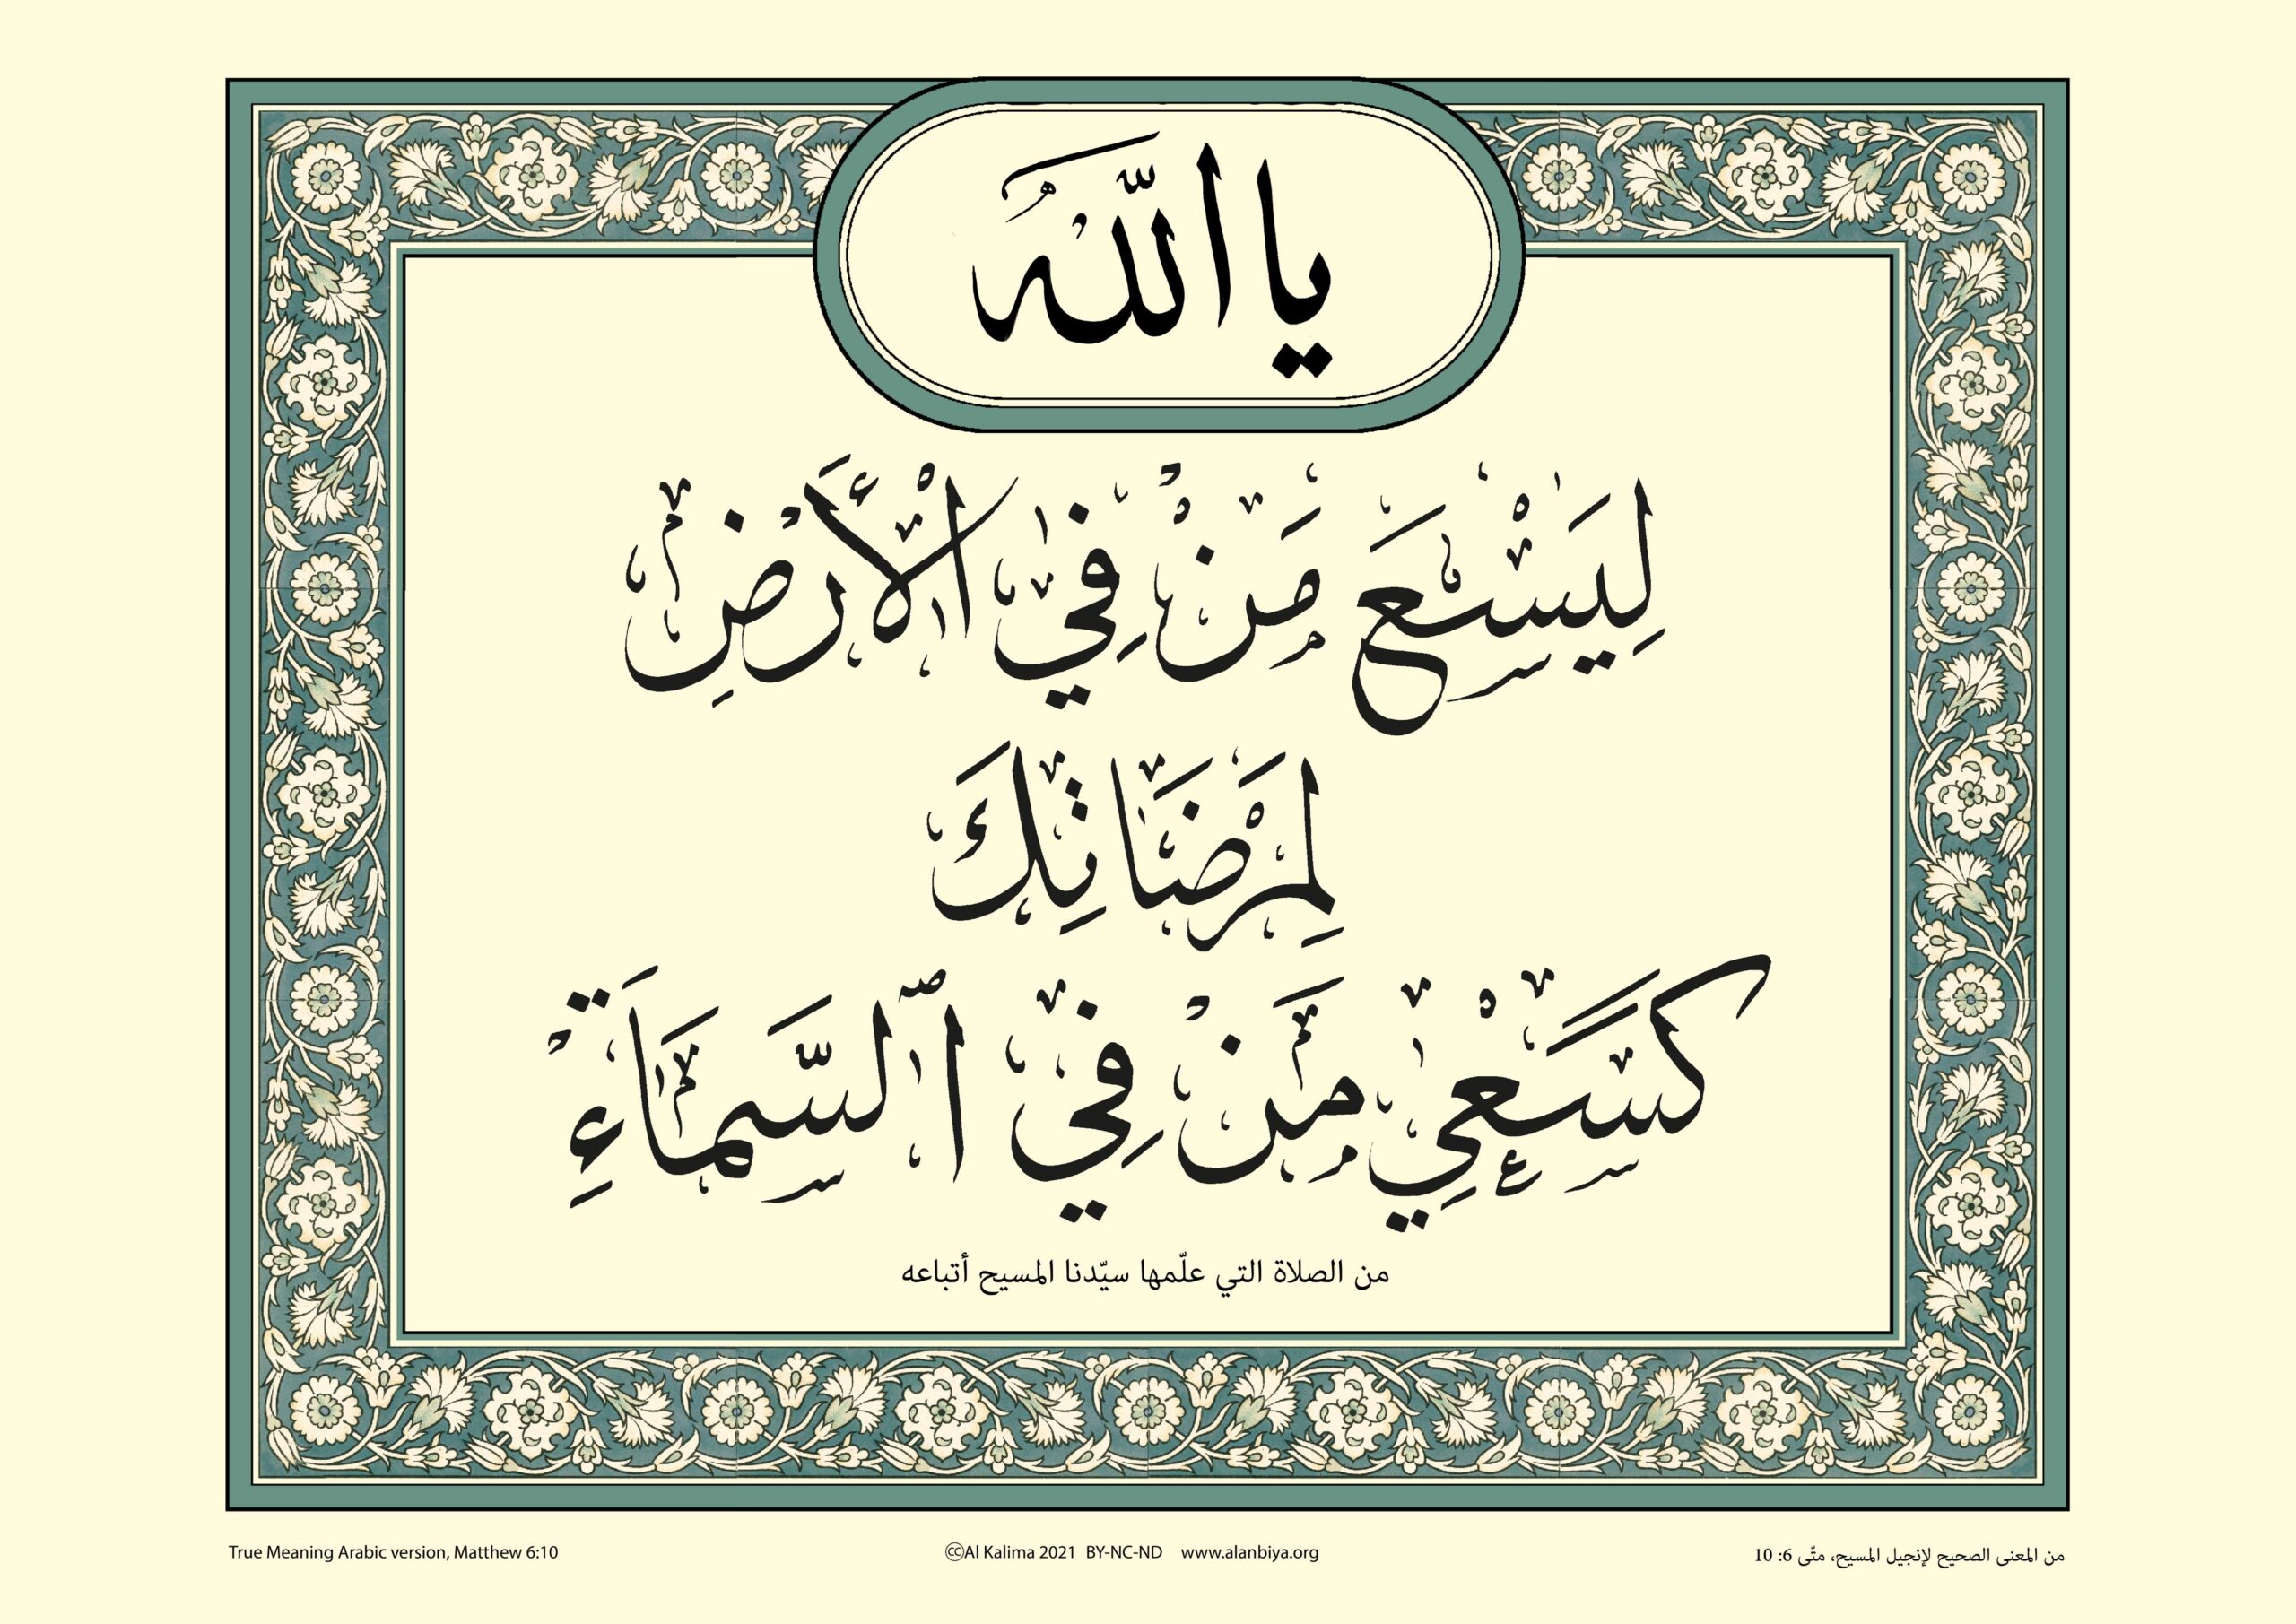 يا اللّٰهُ
لِيَسْعَ مَنْ فِي الْأَرْضِ
لِمَرْضَاتِكَ
كَسَعْيِ مَنْ فِي ٱلسَّمَاءِ
من الصلاة التي علّمها سيّدنا المسيح أتباعه
True Meaning Arabic version, Matthew 6:10
🄯Al Kalima 2021 BY-NC-ND www.alanbiya.org
من المعنى الصحيح لإنجيل المسيح، متّى 6: 10